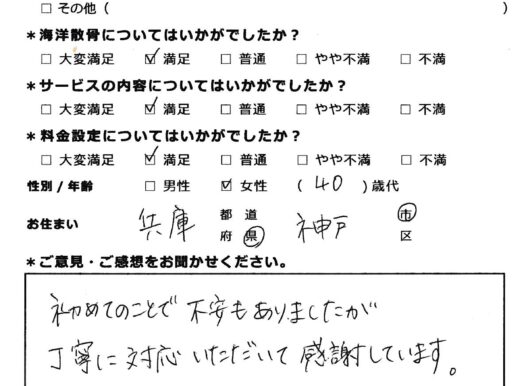 □ その他（　　　　　　　　　　）
＊海洋散骨についてはいかがでしたか？
□ 大変満足　☑ 満足　□ 普通　□ やや不満　□ 不満
＊サービスの内容についてはいかがでしたか？
□ 大変満足　☑ 満足　□ 普通　□ やや不満　□ 不満
＊料金設定についてはいかがでしたか？
□ 大変満足　☑ 満足　□ 普通　□ やや不満　□ 不満
性別 / 年齢　□ 男性　☑ 女性　（ 40 ）歳代
お住まい　兵庫　都 道 府 県　神戸　市 区
＊ご意見・ご感想をお聞かせください。
初めてのことで 不安もありましたが
丁寧に 対応 いただいて 感謝しています。